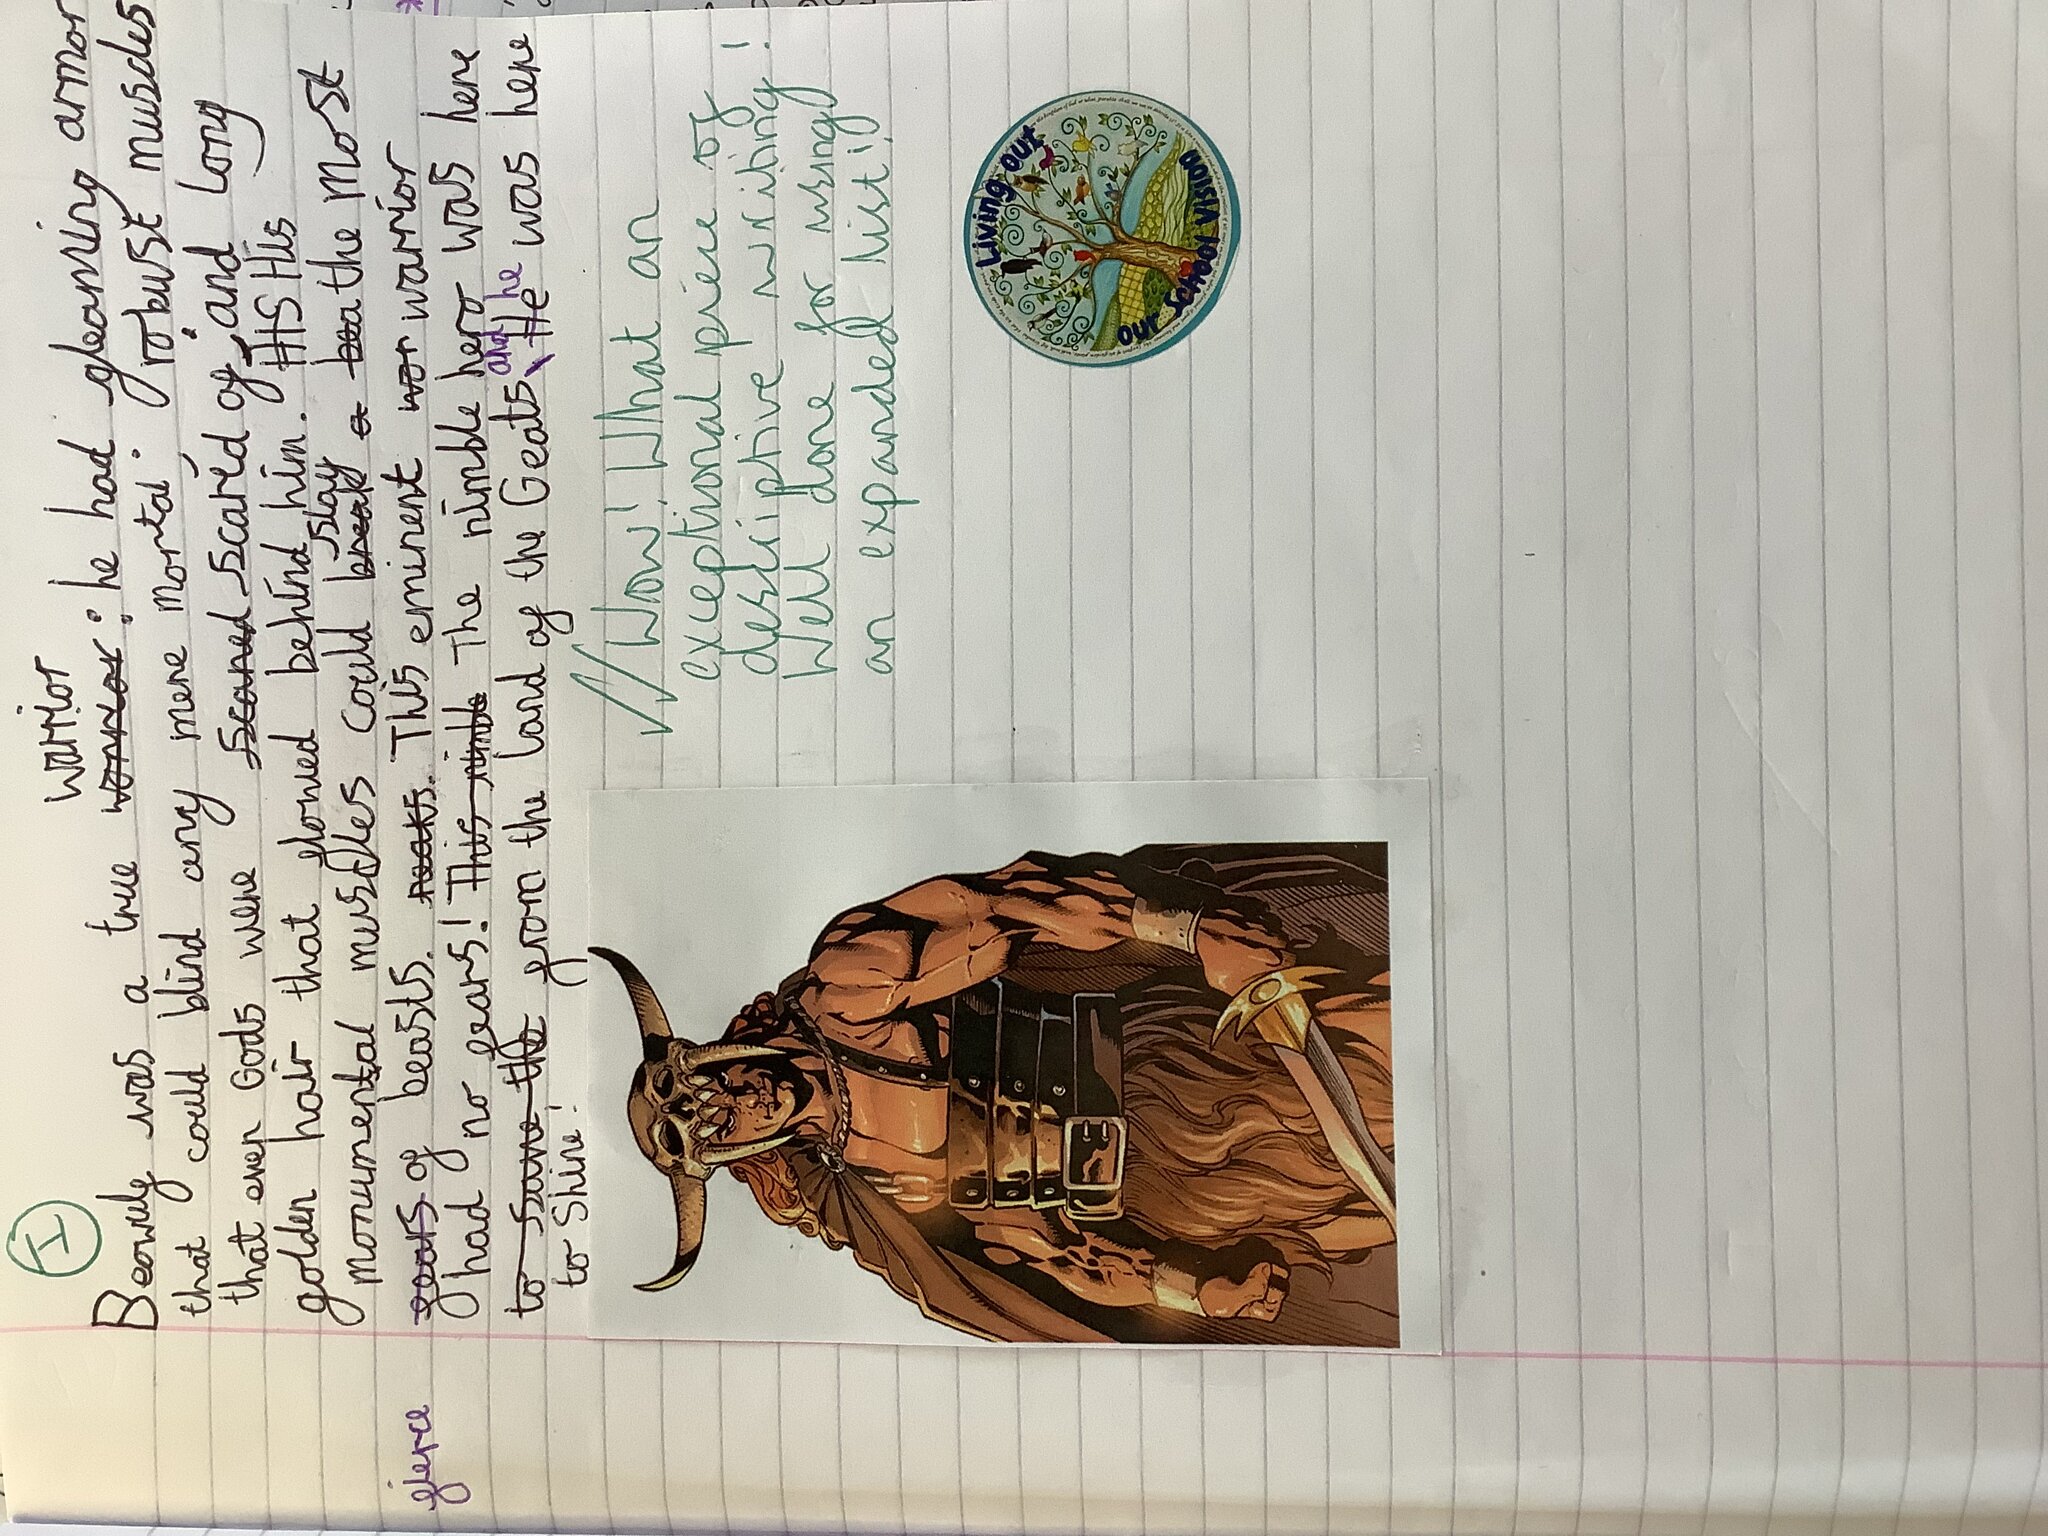 I
warrior
Beowulf was a true worrior : he had gleaming armor
that could blind any mere mortal ; robust muscles
that even Gods were scared scared of ; and long
golden hair that flowed behind him. HS His
monumental muscles could break slay a the most
fierce fears of beasts. This eminent wor warrior
had no fears! This nimble The nimble hero was here
to save the from the land of the Geats and he He was here
to Shine!
// Wow! What an
exceptional piece of
descriptive writing!
Well done for using
an expanded list!
Living out
our School Vision